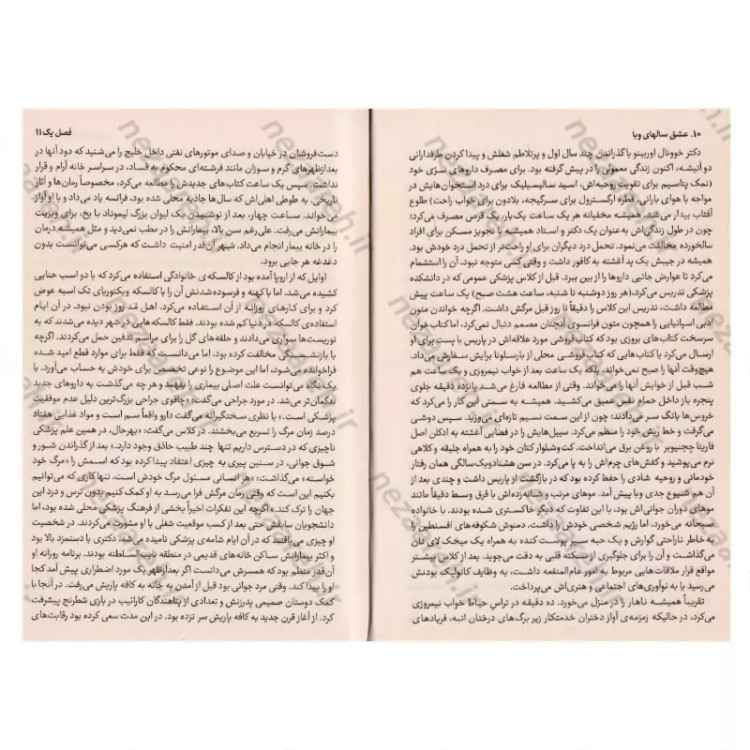 ۱۰. عشق سالهای وبا
دکتر خوونال اوربینو با گذراندن چند سال اول و پرتلاطم شغلش و پیدا کردن طرفدارانی
دو آتیشه، اکنون زندگی معمولی را در پیش گرفته بود. برای مصرف داروهای سرّی خود
(نمک پتاسیم برای تقویت روحیه‌اش، اسید سالیسیلیک برای درد استخوان‌هایش در
مواجه با هوای بارانی، قطره ارگسترول برای سرگیجه، بلادون برای خواب راحت) طلوع
آفتاب بیدار می‌شد، همیشه مخفیانه هر یک ساعت یک‌بار، یک قرص مصرف می‌کرد؛
چون در طول زندگی‌اش به‌عنوان یک دکتر و استاد همیشه با تجویز مسکن برای افراد
سالخورده مخالفت می‌نمود. تحمل درد دیگران برای او راحت‌تر از تحمل درد خودش بود.
همیشه در جیبش یک پد آغشته به کافور داشت و وقتی کسی متوجه نبود، آن را استشمام
می‌کرد تا عوارض جانبی داروها را از بین ببرد. قبل از کلاس پزشکی عمومی که در دانشکده
پزشکی تدریس می‌کرد، (هر روز دوشنبه تا شنبه، ساعت هشت صبح) یک ساعت پیش
مطالعه داشت، تدریس این کلاس را دقیقاً تا روز قبل مرگش داشت. اگرچه خواندن متون
ادبی اسپانیایی را همچون متون فرانسوی آنچنان مصمم دنبال نمی‌کرد، اما کتاب خوان
سرسخت کتاب‌های بروزی بود که کتاب‌فروشی مورد علاقه‌اش در پاریس با پست برای او
ارسال می‌کرد یا کتاب‌هایی که کتاب‌فروشی محلی از بارسلونا برایش سفارش می‌داد.
هیچ‌وقت آنها را صبح نمی‌خواند، بلکه یک ساعت بعد از خواب نیمروزی و یک ساعت هم
شب قبل از خوابش آنها را می‌خواند. وقتی از مطالعه فارغ می‌شد پانزده دقیقه جلوی
پنجره باز داخل حمام نفس عمیق می‌کشید. همیشه به سمتی این کار را می‌کرد که
خروس‌ها بانگ سر می‌دادند؛ چون از این سمت نسیم تازه‌ای می‌وزید. سپس دوشی
می‌گرفت و خط ریش خود را منظم می‌کرد. سبیل‌هایش را در فضایی آغشته به ادکلن اصل
فارینا چجنوبیر با روغن برق می‌انداخت. کت‌وشلوار کتان خود را به همراه جلیقه و کلاهی
نرم می‌پوشید و کفش‌های چرم‌اش را به پا می‌کرد. در سن هشتادویک‌سالگی همان رفتار
خودمانی و روحیه شادی را حفظ کرده بود که در بازگشت از پاریس داشت و چندی بعد از
آن هم شیوع جدی وبا پیش آمد. موهای مرتب و شانه‌زده‌اش با فرق وسط دقیقاً مانند
موهای دوران جوانی‌اش بود، با این تفاوت که دیگر خاکستری شده بودند. با خانواده
صبحانه می‌خورد، اما رژیم شخصی خودش را داشت، دمنوش شکوفه‌های افسنطین را به
خاطر ناراحتی گوارش و یک حبه سیر پوست کنده به همراه یک میخک لای نان
می‌گذاشت و آن را برای جلوگیری از سکته قلبی به دقت می‌جوید. بعد از کلاس بیشتر
مواقع قرار ملاقات‌هایی مربوط به امور عام‌المنفعه داشت، به وظایف کاتولیک بودنش
می‌رسید یا به نوآوری‌های اجتماعی و هنری‌اش می‌پرداخت.
تقریباً همیشه ناهار را در منزل می‌خورد. ده دقیقه در تراس حیاط خواب نیمروزی
می‌کرد، در حالیکه زمزمه‌ی آواز دختران خدمتکار زیر برگ‌های درختان انبه، فریادهای
فصل یک ۱۱
دست‌فروشان در خیابان و صدای موتورهای نفتی داخل خلیج را می‌شنید که دود آنها در
بعدازظهرهای گرم و سوزان مانند فرشته‌ای محکوم به فساد، در سراسر خانه آرام و قرار
نداشت. سپس یک ساعت کتاب‌های جدیدش را مطالعه می‌کرد، مخصوصاً رمان‌ها و آثار
تاریخی. به طوطی اهلی‌اش که سال‌ها جاذبه محلی شده بود، فرانسه یاد می‌داد و با او آواز
می‌خواند. ساعت چهار، بعد از نوشیدن یک لیوان بزرگ لیموناد با یخ، برای ویزیت
بیمارانش می‌رفت. علی‌رغم سن بالا، بیمارانش را در مطب نمی‌دید و مثل همیشه درمان
را در خانه بیمار انجام می‌داد. شهر آن‌قدر امنیت داشت که هرکسی می‌توانست بدون
دغدغه هر جایی برود.
اوایل که از اروپا آمده بود از کالسکه‌ی خانوادگی استفاده می‌کرد که با دو اسب حنایی
کشیده می‌شد، اما با کهنه و فرسوده‌شدنش آن را با کالسکه ویکتوریای تک اسبه عوض
کرد و برای کارهای روزانه از آن استفاده می‌کرد. اهل مُد روز بودن نبود. در آن ایام
استفاده‌ی کالسکه در دنیا کم شده بودند. فقط کالسکه‌هایی در شهر دیده می‌شدند که به
توریست‌ها سواری می‌دادند و حلقه‌های گل را برای مراسم تدفین حمل می‌کردند. اگرچه
با بازنشستگی مخالفت کرده بود، اما می‌دانست که فقط برای موارد قطع امید شده
فراخوانده می‌شود، اما این موضوع را نوعی تخصص برای خودش به حساب می‌آورد. با
یک نگاه می‌توانست علت اصلی بیماری را بفهمد و هر چه می‌گذشت به داروهای جدید
بدگمان‌تر می‌شد. در مورد جراحی می‌گفت: «چاقوی جراحی بزرگ‌ترین دلیل عدم موفقیت
پزشکی است.» با نظری سختگیرانه می‌گفت دارو واقعاً سم است و مواد غذایی هفتاد
درصد زمان مرگ را تسریع می‌بخشند. در کلاس می‌گفت: «بهرحال، در همین علم پزشکی
ناچیزی که در دسترس داریم تنها چند طبیب حاذق وجود دارد.» بعد از گذراندن شور و
شوق جوانی، در سنین پیری به چیزی اعتقاد پیدا کرده بود که اسمش را «مرگ خود
خواسته» می‌گذاشت: «هر انسانی مسئول مرگ خودش است، تنها کاری که می‌توانیم
بکنیم این است که وقتی زمان مرگش فرا می‌رسد به او کمک کنیم بدون ترس و درد این
جهان را ترک کند.» اگرچه این تفکرات اخیراً بخشی از فرهنگ پزشکی محلی شده بود، اما
دانشجویان سابقش حتی بعد از کسب موقعیت شغلی با او مشورت می‌کردند. در شخصیت
او چیزی را می‌یافتند که در آن ایام شامه‌ی پزشکی نامیده می‌شد. دکتری با دستمزد بالا بود
و اکثر بیمارانش ساکن خانه‌های قدیمی در منطقه نایب‌السلطنه بودند. برنامه روزانه او
آن‌قدر منظم بود که همسرش می‌دانست اگر بعدازظهر یک مورد اضطراری پیش آمد کجا
او را پیدا کند. وقتی مرد جوانی بود قبل از آمدن به خانه به کافه پاریش می‌رفت. در آنجا با
کمک دوستان صمیمی پدرزنش و تعدادی از پناهندگان کارائیب در بازی شطرنج پیشرفت
کرد. از آغاز قرن جدید به کافه پاریش سر نزده بود. در این مدت سعی کرده بود رقابت‌های